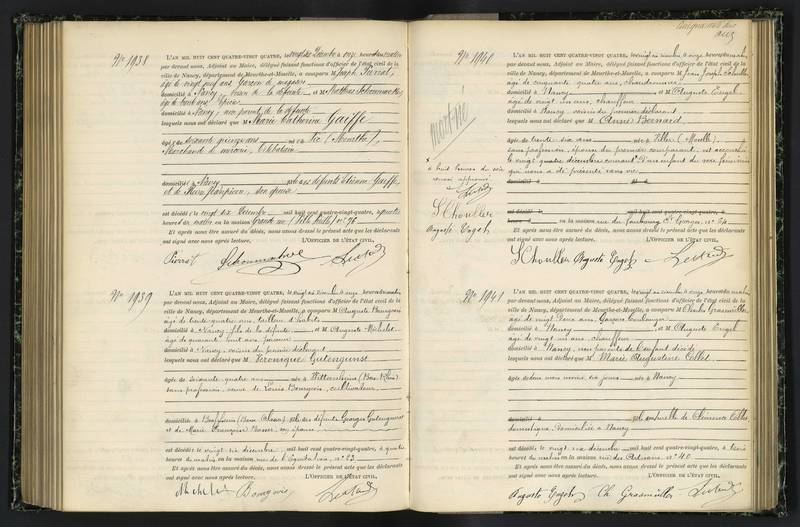 N° 1938
L'AN MIL HUIT CENT QUATRE-VINGT QUATRE, le vingt six Décembre à onze heures du matin
par devant nous, Adjoint au Maire, délégué faisant fonctions d'officier de l'état civil de la
ville de Nancy, département de Meurthe-et-Moselle, a comparu M Joseph Pierrot,
âgé de vingt neuf ans Garçon de magasin
domicilié à Nancy, de la défunte et M Mathias
âgé de
domicilié à Nancy, non parent de la défunte
lesquels nous ont déclaré que M Marie Catherine Gaiffe
âgée de soixante quinze ans née à Vic (Meurthe),
Marchande de mercerie, Célibataire
domiciliée à Nancy fille des défunts Etienne Gaiffe
et de son épouse
est décédée le vingt six Décembre mil huit cent quatre-vingt-quatre, à quatre
heures du matin en la maison Grande rue (Ville Vieille) n° 96
Et après nous être assuré du décès, nous avons dressé le présent acte que les déclarants
ont signé avec nous après lecture. L'OFFICIER DE L'ÉTAT CIVIL,
Pierrot
N° 1939
L'AN MIL HUIT CENT QUATRE-VINGT QUATRE, le vingt six décembre à onze heures du matin
par devant nous, Adjoint au Maire, délégué faisant fonctions d'officier de l'état civil de la
ville de Nancy, département de Meurthe-et-Moselle, a comparu M Auguste Bourgeois
âgé de trente quatre ans, tailleur d'habits
domicilié à Nancy, fils de la défunte et M Auguste Michelet
âgé de quarante huit ans,
domicilié à Nancy, voisin du premier déclarant
lesquels nous ont déclaré que M Véronique
âgée de soixante quatre ans née à Witternheim (Bas-Rhin)
sans profession, veuve de Louis Bourgeois, cultivateur
domiciliée à (Alsace) fille des défunts Georges
et de Marie Françoise son épouse
est décédée le vingt six décembre mil huit cent quatre-vingt-quatre, à quatre
heures du matin en la maison, rue de l'Equitation, n° 23
Et après nous être assuré du décès, nous avons dressé le présent acte que les déclarants
ont signé avec nous après lecture. L'OFFICIER DE L'ÉTAT CIVIL,
Michelet Bourgeois
N° 1940
L'AN MIL HUIT CENT QUATRE-VINGT QUATRE, le vingt six décembre à onze heures du matin
par devant nous, Adjoint au Maire, délégué faisant fonctions d'officier de l'état civil de la
ville de Nancy, département de Meurthe-et-Moselle, a comparu M Jean Joseph Schouller
âgé de cinquante quatre ans, chaudronnier
domicilié à Nancy et M Auguste
âgé de vingt un ans, chauffeur
domicilié à Nancy voisin du premier déclarant
lesquels nous ont déclaré que M Anne Bernard,
mort-né
âgée de trente six ans née à Viller (Moselle)
sans profession, épouse du premier comparant, est accouchée
le vingt quatre décembre courant d'un enfant du sexe féminin
qui nous a été présenté sans vie
domicilié à
à huit heures du soir
renvoi approuvé
S Chouller
est décédé le mil huit cent quatre-vingt-quatre, à
heures en la maison rue du faubourg St Georges, n° 24
Et après nous être assuré du décès, nous avons dressé le présent acte que les déclarants
ont signé avec nous après lecture. L'OFFICIER DE L'ÉTAT CIVIL,
S Chouller Auguste
N° 1941
L'AN MIL HUIT CENT QUATRE-VINGT QUATRE, le vingt six décembre à onze heures du matin
par devant nous, Adjoint au Maire, délégué faisant fonctions d'officier de l'état civil de la
ville de Nancy, département de Meurthe-et-Moselle, a comparu M Charles Grasmuller
âgé de vingt deux ans, Garçon boulanger
domicilié à Nancy et M Auguste
âgé de vingt un ans, chauffeur
domicilié à Nancy, non parents de l'enfant décédé
lesquels nous ont déclaré que M Marie Augustine Collet
âgée de deux mois six jours née à Nancy
domiciliée à fille naturelle de Clémence Collet,
domestique, domiciliée à Nancy
est décédée le vingt six décembre mil huit cent quatre-vingt-quatre, à trois
heures du matin en la maison rue des n° 40
Et après nous être assuré du décès, nous avons dressé le présent acte que les déclarants
ont signé avec nous après lecture. L'OFFICIER DE L'ÉTAT CIVIL,
Auguste Ch. Grasmuller